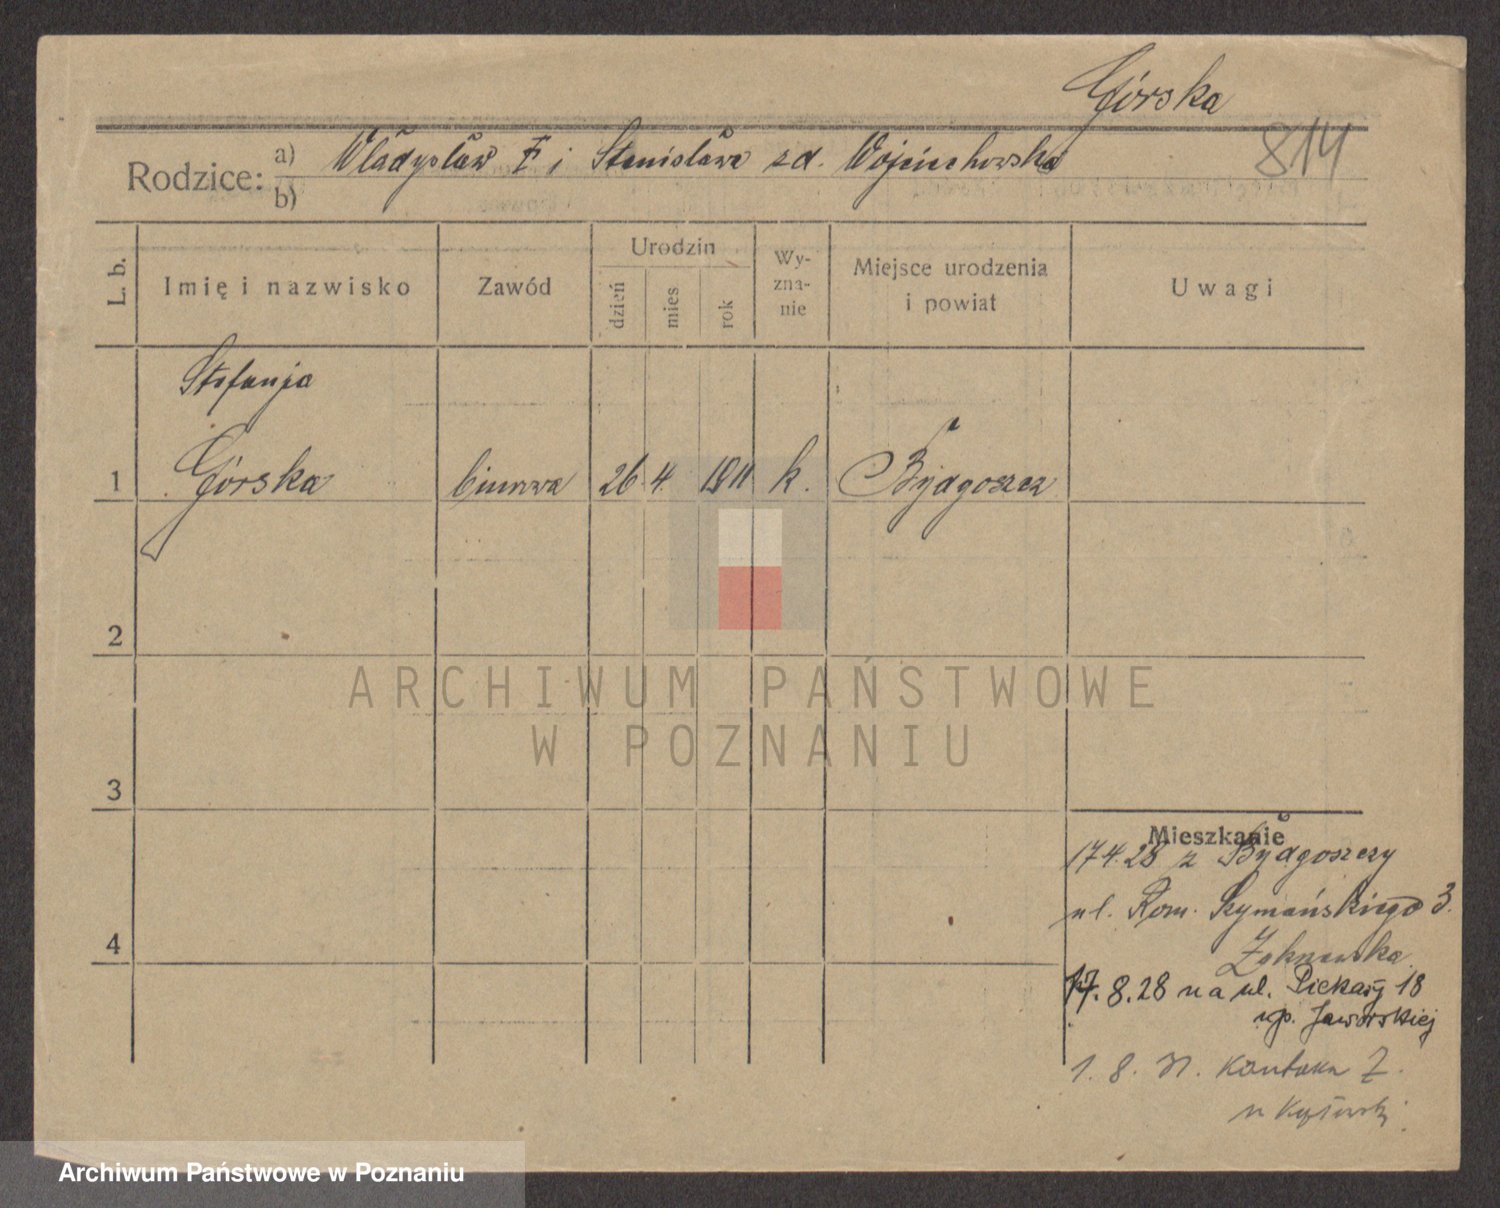 Górska
814
Rodzice:
a) Władysław F i Stanisława zd. Wojciechowska
b)
L. b.
Imię i nazwisko
Zawód
Urodzin
dzień
mies
rok
Wy-
zna-
nie
Miejsce urodzenia
i powiat
Uwagi
Stefanja
1 Górska biurowa 26 4. 1911 k. Bydgoszcz
2
3
4
ARCHIWUM PAŃSTWOWE
W POZNANIU
Mieszkanie
17.4.28 z Bydgoszczy
ul. Rom. Szymańskiego 3.
17.8.28 na ul. Piekary 18
up. Jaworskiej
1. 8. 31. Kantaka 7.
Archiwum Państwowe w Poznaniu